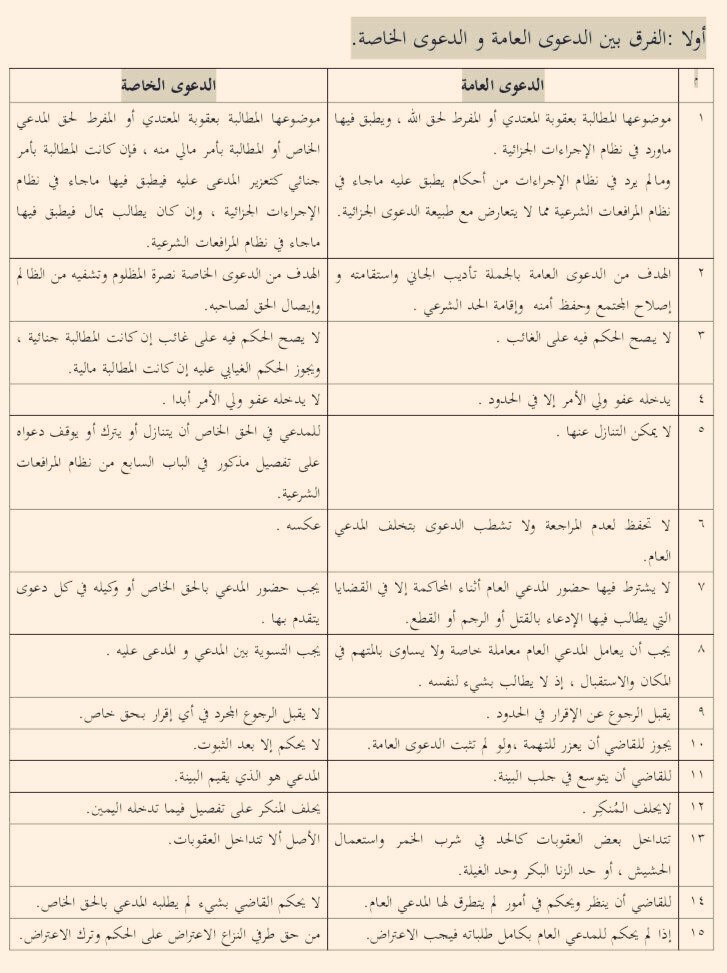 أولا :الفرق بين الدعوى العامة و الدعوى الخاصة.
م
الدعوى العامة
الدعوى الخاصة
١
موضوعها المطالبة بعقوبة المعتدي أو المفرط لحق الله ، ويطبق فيها
ماورد في نظام الإجراءات الجزائية .
ومالم يرد في نظام الإجراءات من أحكام يطبق عليه ماجاء في
نظام المرافعات الشرعية مما لا يتعارض مع طبيعة الدعوى الجزائية.
موضوعها المطالبة بعقوبة المعتدي أو المفرط لحق المدعي
الخاص أو المطالبة بأمر مالي منه ، فإن كانت المطالبة بأمر
جنائي كتعزير المدعى عليه فيطبق فيها ماجاء في نظام
الإجراءات الجزائية ، وإن كان يطالب بمال فيطبق فيها
ماجاء في نظام المرافعات الشرعية.
٢
الهدف من الدعوى العامة بالجملة تأديب الجاني واستقامته و
إصلاح المجتمع وحفظ أمنه وإقامة الحد الشرعي .
الهدف من الدعوى الخاصة نصرة المظلوم وتشفيه من الظالم
وإيصال الحق لصاحبه.
٣
لا يصح الحكم فيه على الغائب .
لا يصح الحكم فيه على غائب إن كانت المطالبة جنائية ،
ويجوز الحكم الغيابي عليه إن كانت المطالبة مالية.
٤
يدخله عفو ولي الأمر إلا في الحدود .
لا يدخله عفو ولي الأمر أبدا .
٥
لا يمكن التنازل عنها .
للمدعي في الحق الخاص أن يتنازل أو يترك أو يوقف دعواه
على تفصيل مذكور في الباب السابع من نظام المرافعات
الشرعية.
٦
لا تحفظ لعدم المراجعة ولا تشطب الدعوى بتخلف المدعي
العام.
عكسه .
٧
لا يشترط فيها حضور المدعي العام أثناء المحاكمة إلا في القضايا
التي يطالب فيها الإدعاء بالقتل أو الرجم أو القطع.
يجب حضور المدعي بالحق الخاص أو وكيله في كل دعوى
يتقدم بها .
٨
يجب أن يعامل المدعي العام معاملة خاصة ولا يساوى بالمتهم في
المكان والاستقبال ، إذ لا يطالب بشيء لنفسه .
يجب التسوية بين المدعي و المدعى عليه .
٩
يقبل الرجوع عن الإقرار في الحدود .
لا يقبل الرجوع المجرد في أي إقرار بحق خاص.
١٠
يجوز للقاضي أن يعزر للتهمة ،ولو لم تثبت الدعوى العامة.
لا يحكم إلا بعد الثبوت.
١١
للقاضي أن يتوسع في جلب البينة.
المدعي هو الذي يقيم البينة.
١٢
لايحلف المُنكِر .
يحلف المنكر على تفصيل فيما تدخله اليمين.
١٣
تتداخل بعض العقوبات كالحد في شرب الخمر واستعمال
الحشيش ، أو حد الزنا البكر وحد الغيلة.
الأصل ألا تتداخل العقوبات.
١٤
للقاضي أن ينظر ويحكم في أمور لم يتطرق لها المدعي العام.
لا يحكم القاضي بشيء لم يطلبه المدعي بالحق الخاص.
١٥
إذا لم يحكم للمدعي العام بكامل طلباته فيجب الاعتراض.
من حق طرفي النزاع الاعتراض على الحكم وترك الاعتراض.